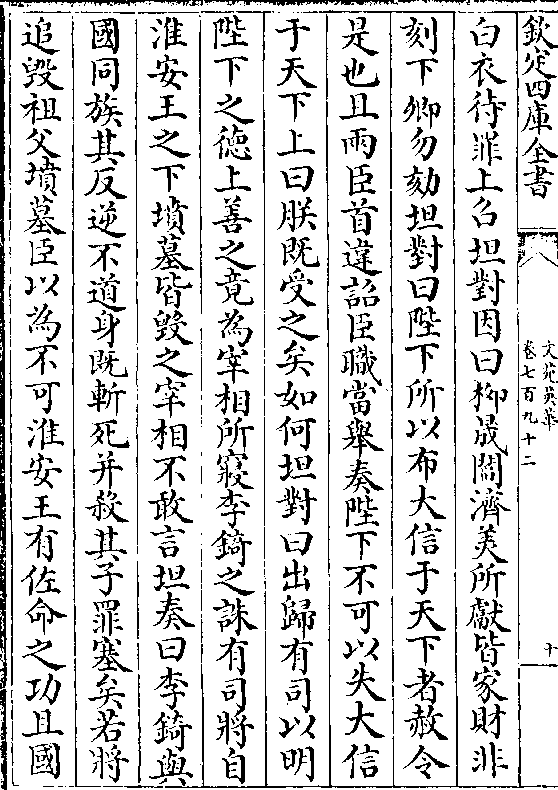 欽定四庫全書
文苑英華
卷七百九十二
十
白衣待罪上召坦對因曰柳晟閻濟美所獻皆家財非
刻下卿勿劾坦對曰陛下所以布大信于天下者赦令
是也且兩臣首違詔臣職當舉奏陛下不可以失大信
于天下上曰朕既受之矣如何坦對曰出歸有司以明
陛下之德上善之竟為宰相所寢李錡之誅有司將自
淮安王之下墳墓皆毁之宰相不敢言坦奏曰李錡與
國同族其反逆不道身既斬死并殺其子罪塞矣若將
追毁祖父墳墓臣以為不可淮安王有佐命之功且國